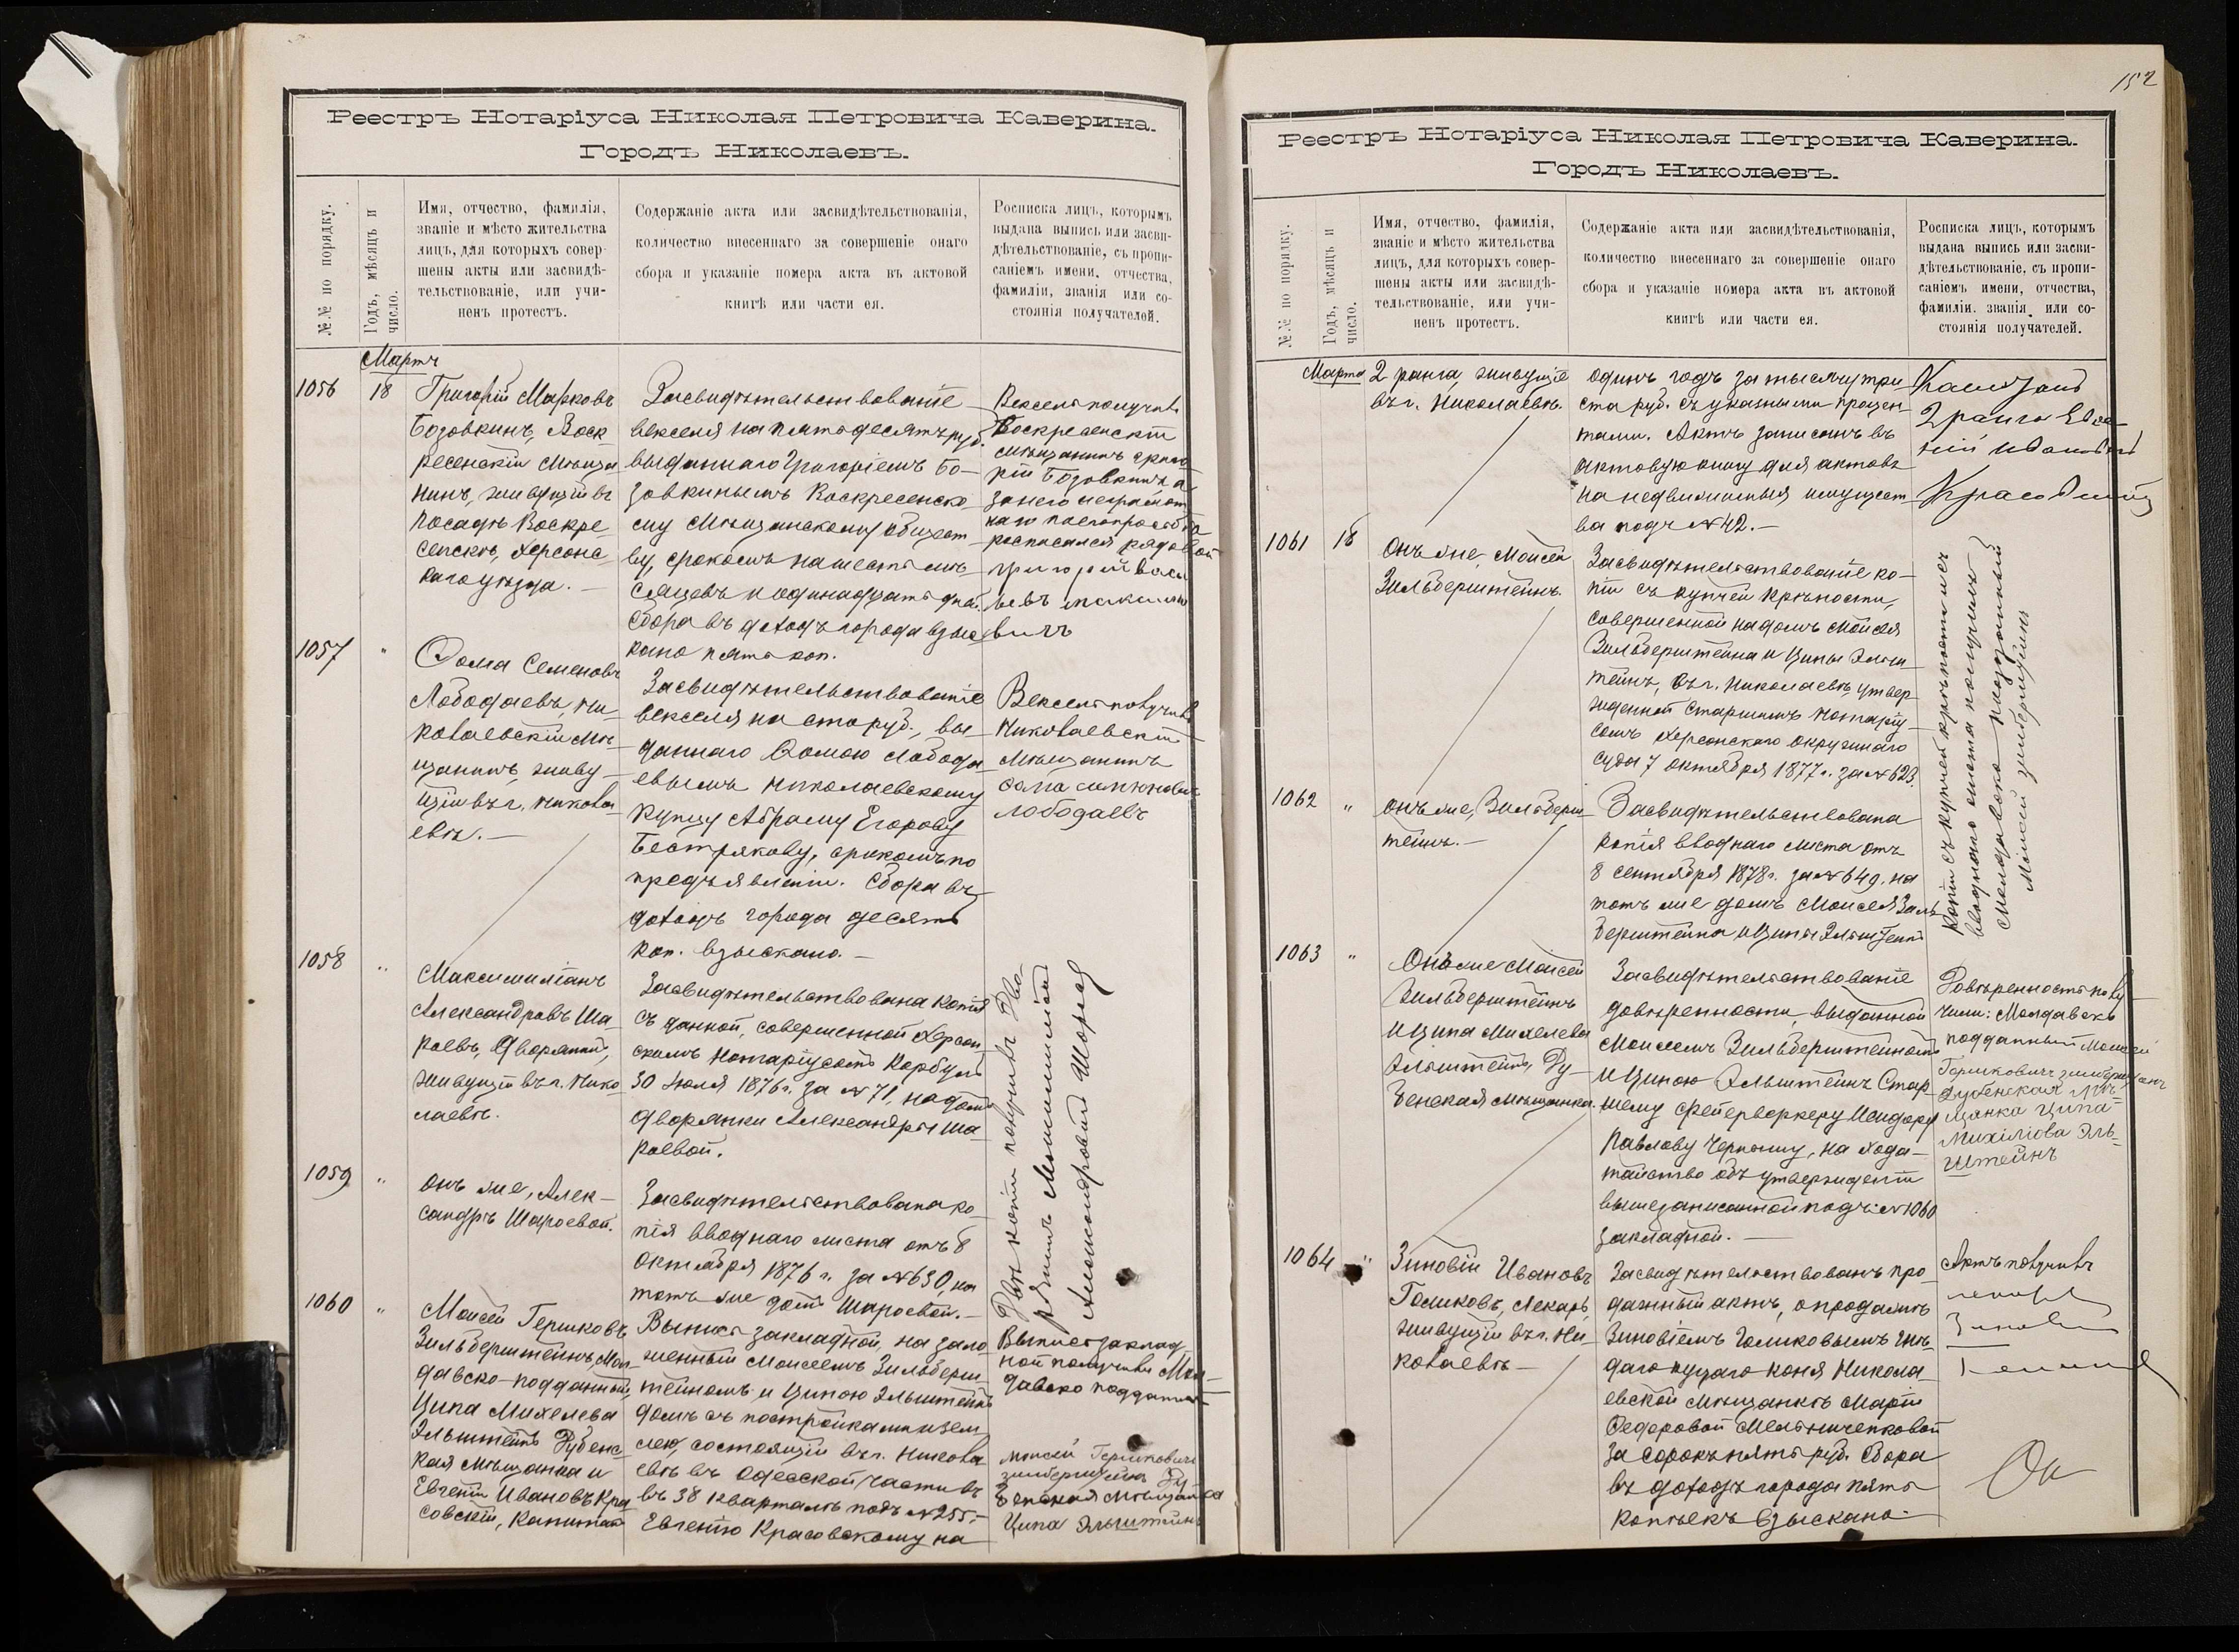 Реестръ Нотаріуса Николая Петровича Каверина.
Городъ Николаевъ.
№№ по порядку.
Годъ, мѣсяцъ и
число.
Имя, отчество, фамилія,
званіе и мѣсто жительства
лицъ, для которыхъ совер-
шены акты или засвидѣ-
тельствованіе, или учи-
ненъ протестъ.
Содержаніе акта или засвидѣтельствованія,
количество внесеннаго за совершеніе онаго
сбора и указаніе номера акта въ актовой
книгѣ или части ея.
Росписка лицъ, которымъ
выдана выпись или засви-
дѣтельствованіе, съ пропи-
саніемъ имени, отчества,
фамиліи, званія или со-
стоянія получателей.
Мартъ
1056
18
Григорій Марковъ
Бозовкинъ, Воск-
ресенскій мѣща
нинъ, живущій въ
посадѣ Воскре
сенскѣ, Херсонс
каго уѣзда. —
Засвидѣтельствованіе
векселя на пятьдесятъ руб.
выданнаго Григоріемъ Бо-
зовкинымъ Воскресенско
му Мѣщанскому обществ
ву, срокомъ на шесть мѣ-
сяцевъ и одинадцать дней.
Сбора въ доходъ города взыс
кано пять коп.
Вексель получилъ
Воскресенскій
мѣщанинъ Григо
рій Бозовкинъ а
за него неграмот
наго по его просьбѣ
росписался рядовой
Григорій Васи
льевъ
1057
"
Фома Семеновъ
Лободаевъ, Ни-
колаевскій мѣ-
щанинъ, живу-
щій въ г. Никола
евѣ. —
Засвидѣтельствованіе
векселя на сто руб., вы-
даннаго Фомою Лобода
евымъ Николаевскому
купцу Абраму Егорову
Бестрякову, срокомъ по
предъявленіи. Сбора въ
доходъ города десять
коп. взыскано. —
Вексель получилъ
Николаевскій
Мѣщанинъ
Фома
Лободаевъ
1058
"
Максимиліанъ
Александровъ Ша-
роевъ, Дворянинъ,
живущій въ г. Нико
лаевѣ.
Засвидѣтельствована копія
съ данной, совершенной Херсон
скимъ Нотаріусомъ Корбуль
30 Іюля 1876 г. за № 71, на домъ
дворянки Александры Ша-
роевой.
1059
"
Онъ же, Алек-
сандръ Шароевой.
Засвидѣтельствована ко-
пія вводнаго листа отъ 8
Октября 1876 г. за № 630, на
тотъ же домъ Шароевой. —
Двѣ копіи получилъ Дво-
рянинъ Максимиліанъ
Александровъ Шароев
1060
"
Моисей Гершковъ
Зильберштейнъ, Мол-
давско-подданный,
Ципа Михелева
Эльштейнъ Дубенс
кая мѣщанка и
Евгеній Ивановъ Кра
совскій, Капитан
Выпись закладной, на зало
женный Моисеемъ Зильберш
тейномъ и Ципою Эльштейнъ
домъ съ постройками и зем
лею, состоящій въ г. Никола
евѣ въ Одесской части въ
въ 38 кварталѣ подъ № 255, —
Евгенію Красовскому на
Выпись заклад
ной получилъ Мол-
давско подданный
Моисей Гершковичъ
зилберштейнъ Ду
бенская мѣщанка
Ципа Эльштейнъ
152
Реестръ Нотаріуса Николая Петровича Каверина.
Городъ Николаевъ.
№№ по порядку.
Годъ, мѣсяцъ и
число.
Имя, отчество, фамилія,
званіе и мѣсто жительства
лицъ, для которыхъ совер-
шены акты или засвидѣ-
тельствованіе, или учи-
ненъ протестъ.
Содержаніе акта или засвидѣтельствованія,
количество внесеннаго за совершеніе онаго
сбора и указаніе номера акта въ актовой
книгѣ или части ея.
Росписка лицъ, которымъ
выдана выпись или засви-
дѣтельствованіе, съ пропи-
саніемъ имени, отчества,
фамиліи, званія или со-
стоянія получателей.
Марта
2 ранга, живущіе
въ г. Николаевѣ.
одинъ годъ за тысячу три
ста руб. съ указными процен
тами. Актъ записанъ въ
актовую книгу для актовъ
на недвижимыя имущест
ва подъ № 42. —
Капитанъ
2 ранга Евге
ній Ивановъ
Красовскій
1061
18
Онъ же, Моисей
Зильберштейнъ.
Засвидѣтельствованіе ко-
піи съ купчей крѣпости,
совершенной на домъ Моисея
Зильберштейна и Ципы Эльш
тейнъ, въ г. Николаевѣ, утвер
жденной Старшимъ Нотаріу
сомъ Херсонскаго Окружнаго
Суда 7 октября 1877 г. за № 623.
1062
"
Онъ же, Зильберш
тейнъ. —
Засвидѣтельствована
копія вводнаго листа отъ
8 сентября 1878 г. за № 649. на
тотъ же домъ Моисея Зиль
берштейна и Ципы Эльштейнъ
Копіи съ купчей крѣпости и съ
вводнаго листа получилъ
Молдавско-подданный
Мойсей зилберштейнъ
1063
"
Онъ же Моисей
Зильберштейнъ
и Ципа Михелева
Эльштейнъ, Ду-
бенская мѣщанка.
Засвидѣтельствованіе
довѣренности, выданной
Моисеемъ Зильберштейномъ
и Ципою Эльштейнъ Стар-
шему фейерверкеру Исидору
Павлову Черному, на хода-
тайство объ утвержденіи
вышезаписанной подъ № 1060
закладной. —
Довѣренность полу
чили: Молдавско
подданный Моисей
Гершковичъ зилберштейнъ
Дубенская мѣ-
щанка Ципа
Михиліова Эль-
штейнъ
1064
"
Зиновій Ивановъ
Голиковъ, Лекарь,
живущій въ г. Ни
колаевѣ —
Засвидѣтельствованъ про
дажный актъ, о продажѣ
Зиновіемъ Голиковымъ гнѣ-
даго куцаго коня Никола
евской мѣщанкѣ Маріи
Федоровой Мельниченковой
за сорокъ пять руб. Сбора
въ доходъ города пять
копѣекъ взыскано —
Актъ получилъ
лекарь
Зиновій